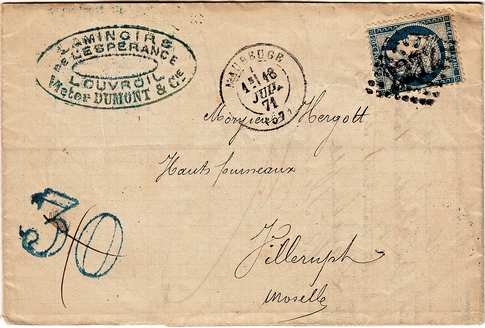 LAMINOIRS
DE L'ESPÉRANCE
LOUVROIL
Victor DUMONT & Cie
MAUBEUGE
18
JUIL
71
(57)
Monsieur Hergott
Hauts fourneaux
Villerupt
Moselle
30